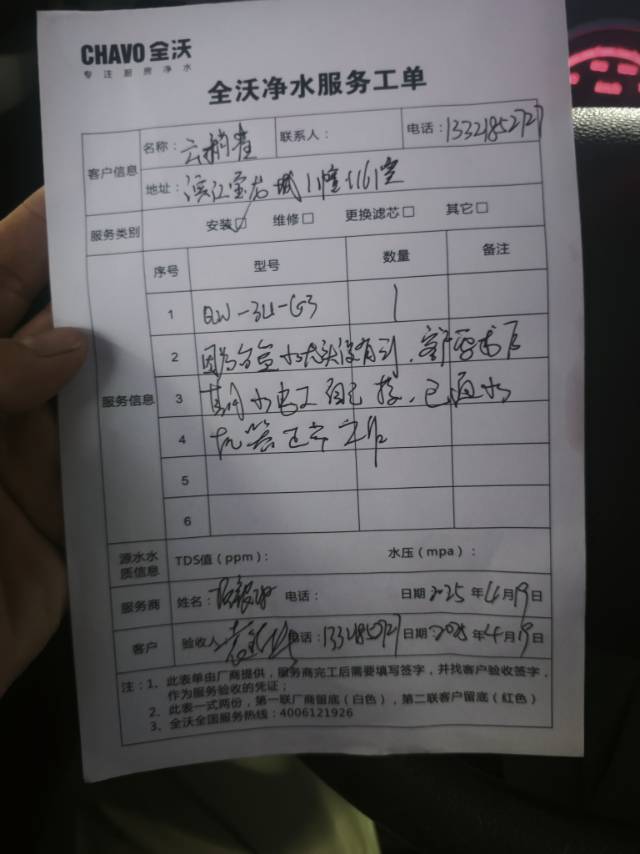 CHAVO 全沃
专注厨房净水
全沃净水服务工单
客户信息
名称:
联系人:
电话: 13321852727
地址: 滨江宝龙城11幢1161室
服务类别
安装 维修 更换滤芯 其它
服务信息
序号 型号 数量 备注
1 QW-3U-G3 1
2 水龙头没有到,客户要求后
3 水电工自已接,已通水
4 机器正常工作
5
6
源水水质信息
TDS值(ppm): 水压(mpa):
服务商 姓名: 电话: 日期2025年4月19日
客户 验收人 电话:13321852727 日期2025年4月19日
注:1、此表单由厂商提供,服务商完工后需要填写签字,并找客户验收签字,
作为服务验收的凭证;
2、此表一式两份,第一联厂商留底(白色),第二联客户留底(红色)
3、全沃全国服务热线:4006121926